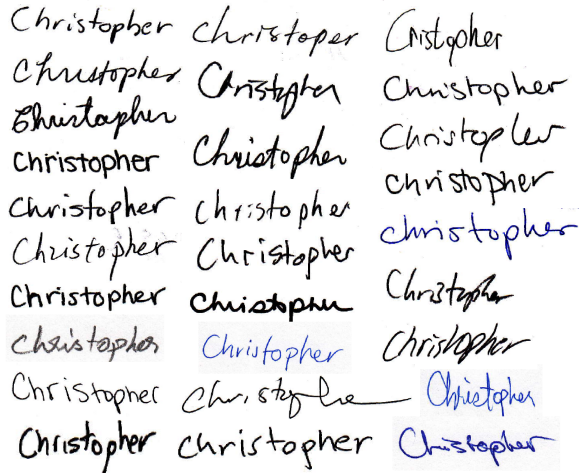 Christopher
Christopher
Christopher
Christopher
Christopher
Christopher
Christopher
Christopher
Christopher
Christopher
Christoper
Christopher
Christopher
Christopher
Christopher
Christopher
Christopher
Christophe
Christopher
Cristopher
Christopher
Christopher
Christopher
Christopher
Christopher
Christopher
Christopher
Christopher